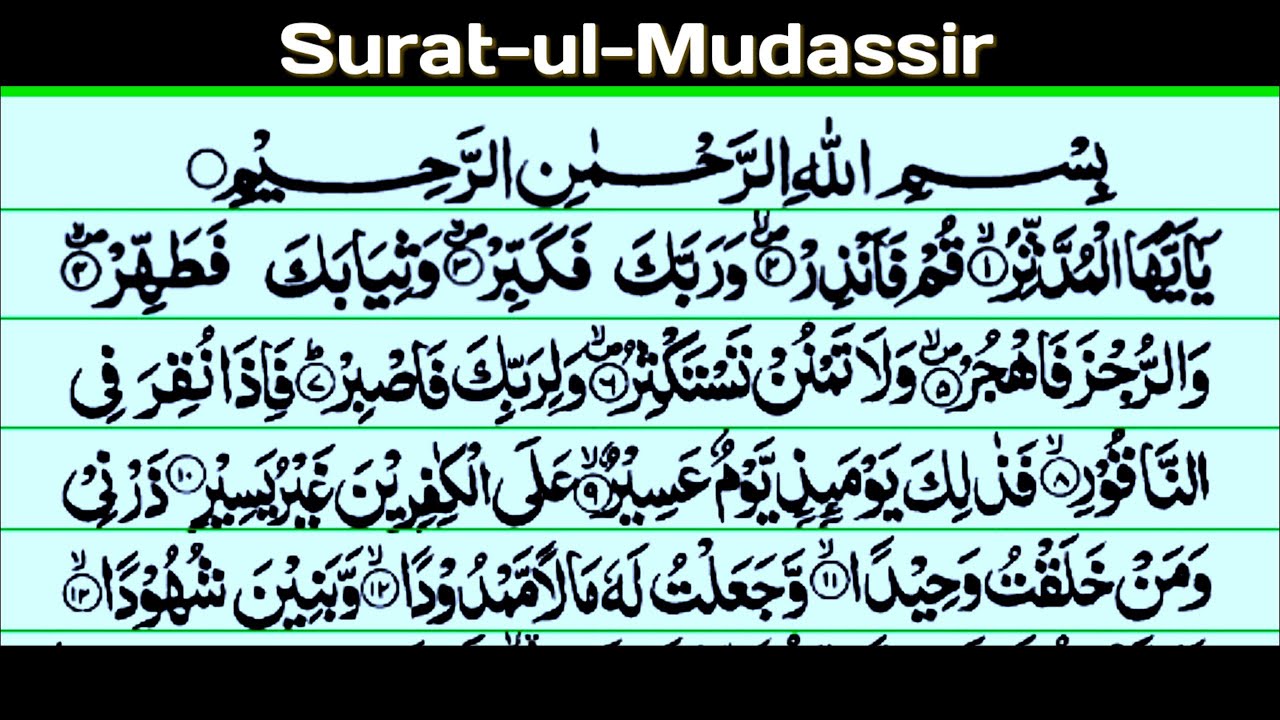 Surat-ul-Mudassir
بِسْمِ اللّٰهِ الرَّحْمٰنِ الرَّحِيْمِ
يٰۤاَيُّهَا الْمُدَّثِّرُۙ۱ قُمْ فَاَنْذِرْ۪ۙ۲ وَرَبَّكَ فَكَبِّرْ۪ۙ۳ وَثِيَابَكَ فَطَهِّرْ۪ۙ۴
وَالرُّجْزَ فَاهْجُرْ۪ۙ۵ وَلَا تَمْنُنْ تَسْتَكْثِرُ۪ۙ۶ وَلِرَبِّكَ فَاصْبِرْؕ۷ فَاِذَا نُقِرَ فِي
النَّاقُوْرِۙ۸ فَذٰلِكَ يَوْمَئِذٍ يَّوْمٌ عَسِيْرٌۙ۹ عَلَى الْكٰفِرِيْنَ غَيْرُ يَسِيْرٍ۱۰ ذَرْنِيْ
وَمَنْ خَلَقْتُ وَحِيْدًاۙ۱۱ وَّجَعَلْتُ لَهٗ مَالًا مَّمْدُوْدًاۙ۱۲ وَّبَنِيْنَ شُهُوْدًاۙ۱۳